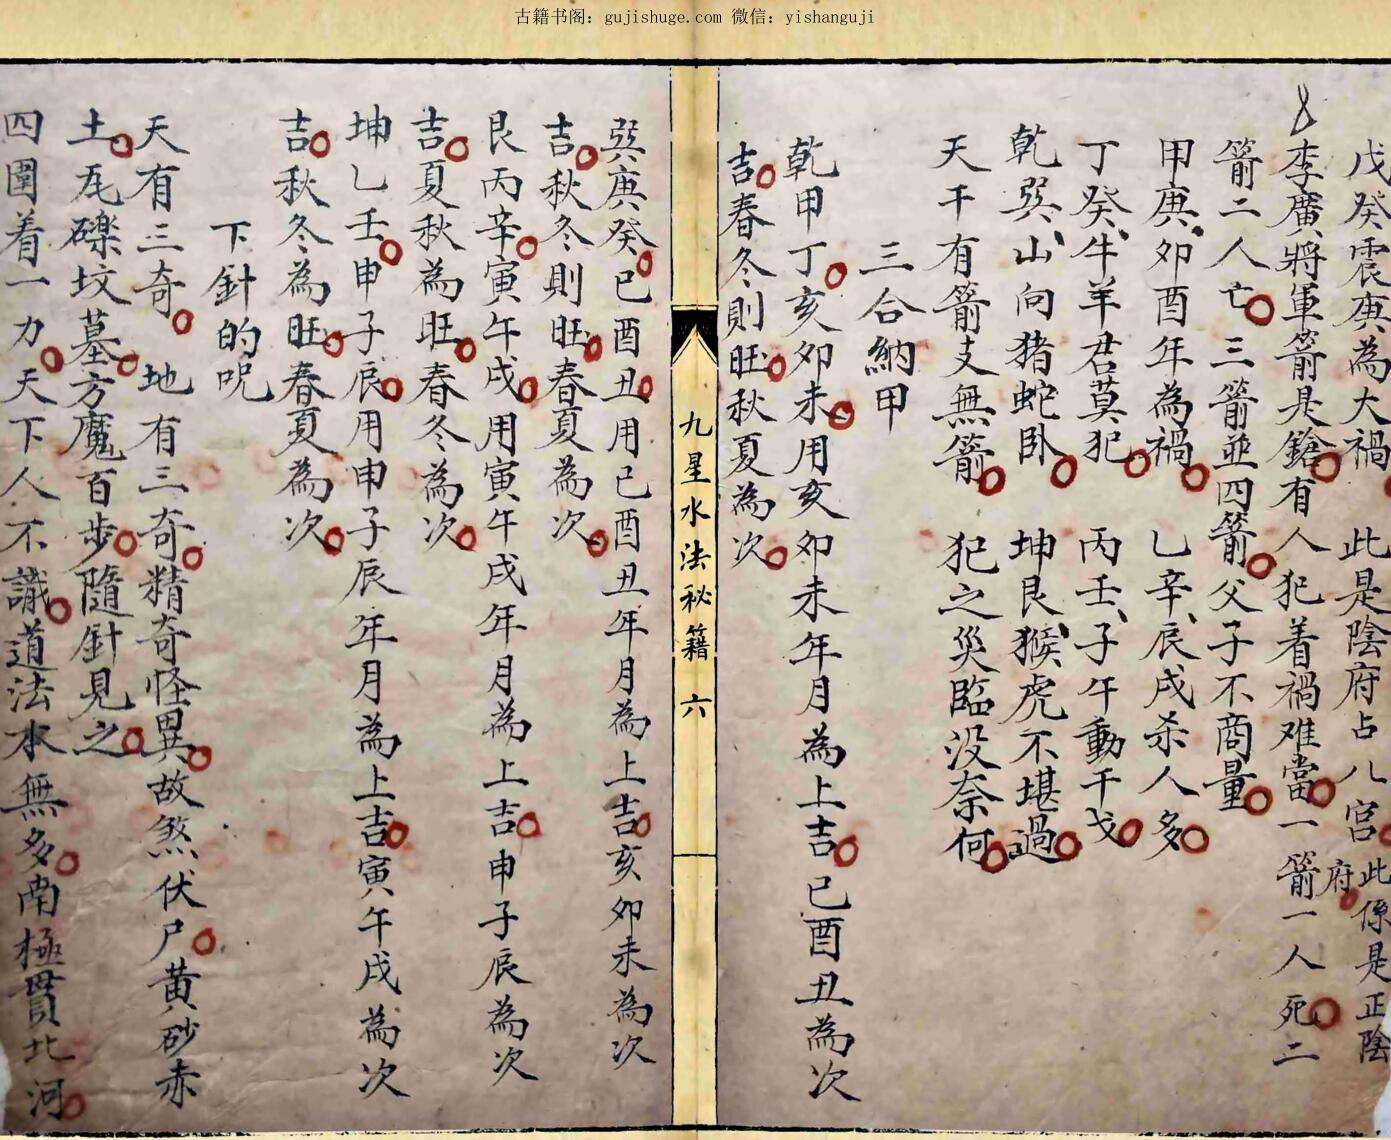 古籍书阁：gujishuge.com 微信：yishanguji
戊癸震庚為大禍 此是陰府占八宮 此係是正陰府
李廣將軍箭是鎗有人犯着禍难當一箭一人死二
箭二人亡三箭並四箭父子不商量
甲庚卯酉年為禍 乙辛辰戌杀人多
丁癸牛羊君莫犯 丙壬子午動干戈
乾巽山向猪蛇卧 坤艮猴虎不堪過
天干有箭支無箭 犯之災臨没奈何
三合納甲
乾甲丁亥卯未用亥卯未年月為上吉已酉丑為次
吉春冬則旺秋夏為次
九星水法秘籍 六
巽庚癸已酉丑用已酉丑年月為上吉亥卯未為次
吉秋冬則旺春夏為次
艮丙辛寅午戌用寅午戌年月為上吉申子辰為次
吉夏秋為旺春冬為次
坤乙壬申子辰用申子辰年月為上吉寅午戌為次
吉秋冬為旺春夏為次
下針的呪
天有三奇 地有三奇精奇怪異故煞伏尸黄砂赤
土瓦礫坟墓方魔百步隨針見之
四圍着一力天下人不識道法水無多南極貫北河